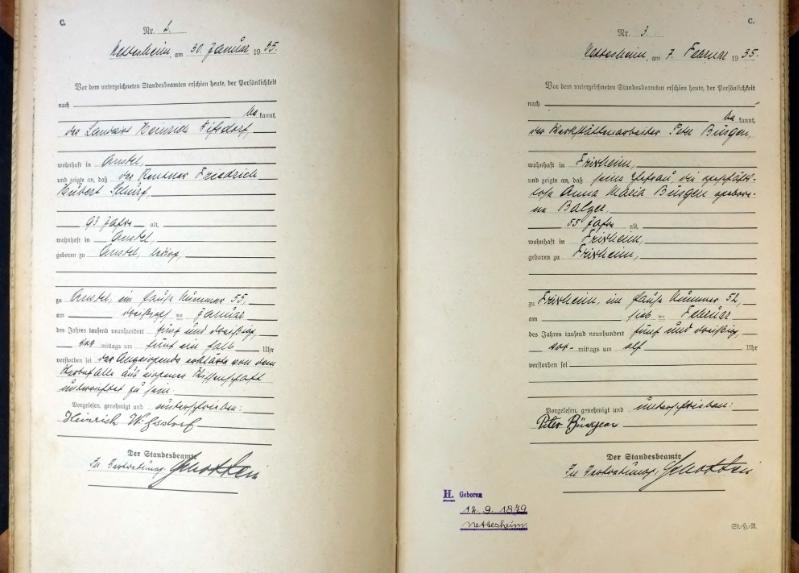 C.
Nr. 2.
Nettersheim, am 30. Januar 1935.
Vor dem unterzeichneten Standesbeamten erschien heute, der Persönlichkeit
nach
be kannt,
der Landwirt Heinrich
wohnhaft in
und zeigte an, daß der Rentner Friedrich
Hubert Schürf,
93 Jahre alt,
wohnhaft in
geboren zu
zu im Hause Nummer 55,
am dreißigsten Januar
des Jahres tausend neunhundert fünf und dreißig,
vor mittags um fünf ein halb Uhr
verstorben sei der Anzeigende erklärte von dem
Sterbefalle aus eigener Wissenschaft
unterrichtet zu sein.
Vorgelesen, genehmigt und unterschrieben:
Heinrich
Der Standesbeamte
In Vertretung:
C.
Nr. 3
Nettersheim, am 7. Februar 1935.
Vor dem unterzeichneten Standesbeamten erschien heute, der Persönlichkeit
nach
be kannt,
der Werkstättenarbeiter Peter Bürgen,
wohnhaft in Frixheim,
und zeigte an, daß seine Ehefrau, die geschäfts-
lose Anna Maria Bürgen gebore-
ne Balzer
55 Jahre alt,
wohnhaft in Frixheim,
geboren zu Frixheim,
zu Frixheim, im Hause Nummer 52,
am Februar
des Jahres tausend neunhundert fünf und dreißig,
vor- mittags um elf Uhr
verstorben sei
Vorgelesen, genehmigt und unterschrieben:
Peter
Der Standesbeamte
In Vertretung:
H. Geboren
12. 9. 1879
Nettesheim